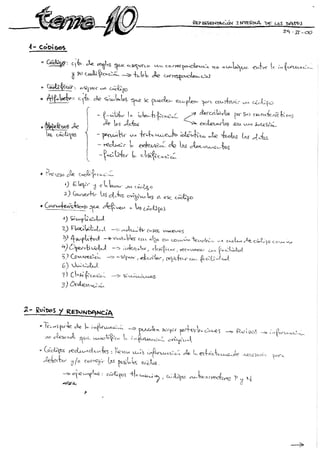 tema 10
REPRESENTACIÓN INTERNA DE LOS DATOS
29-II-00
1- CÓDIGOS
• Código: cjto. de reglas que aseguran una correspondencia no ambigua entre la información
y su codificación → tabla de correspondencias
• Codificar: asignar un código
• Alfabeto: cjto. de símbolos que se pueden emplear para construir un código
• Objetivos de los códigos
- facilitar la identificación de los datos
describirlos por sus características
ordenarlos con una
- permitir un tratamiento idéntico de todos los datos
- reducir la extensión de los documentos
- facilitar la clasificación
• Proceso de codificación
1) Elegir y elaborar un código
2) Convertir los datos originales a ese código
• Características que definen a los códigos
1) Simplicidad
2) Flexibilidad → admitir casos nuevos
3) Amplitud → variables con algo en común tendrán un de código común
4) Operatividad → clasificar, con facilidad
5) Conversión → con facilidad
6) Unicidad
7) Clasificación → sinónimos
8) Ordenación
2- RUIDOS Y REDUNDANCIA
• Transporte de la información → pueden surgir perturbaciones → Ruidos → información
no deseada que modifica la información original
• Códigos redundantes: llevan más información de la estrictamente necesaria para
detectar y/o corregir los posibles ruidos.
→ ejemplos: códigos Hamming, código autocorrectivo P y N